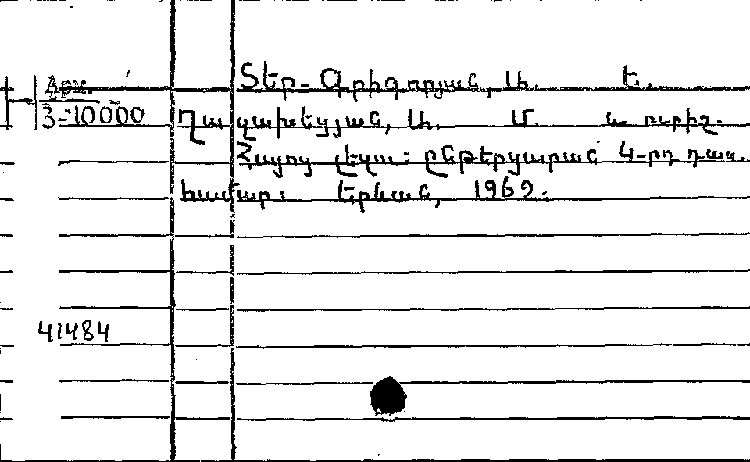 Տեր-Գրիգորյան, Ա. Ե.
3-10000
Ղազախեցյան, Ա. Մ. և ուրիշ.
Հայոց լեզու: Ընթերցարան 4-րդ դաս.
համար: Երևան, 1969.
41484